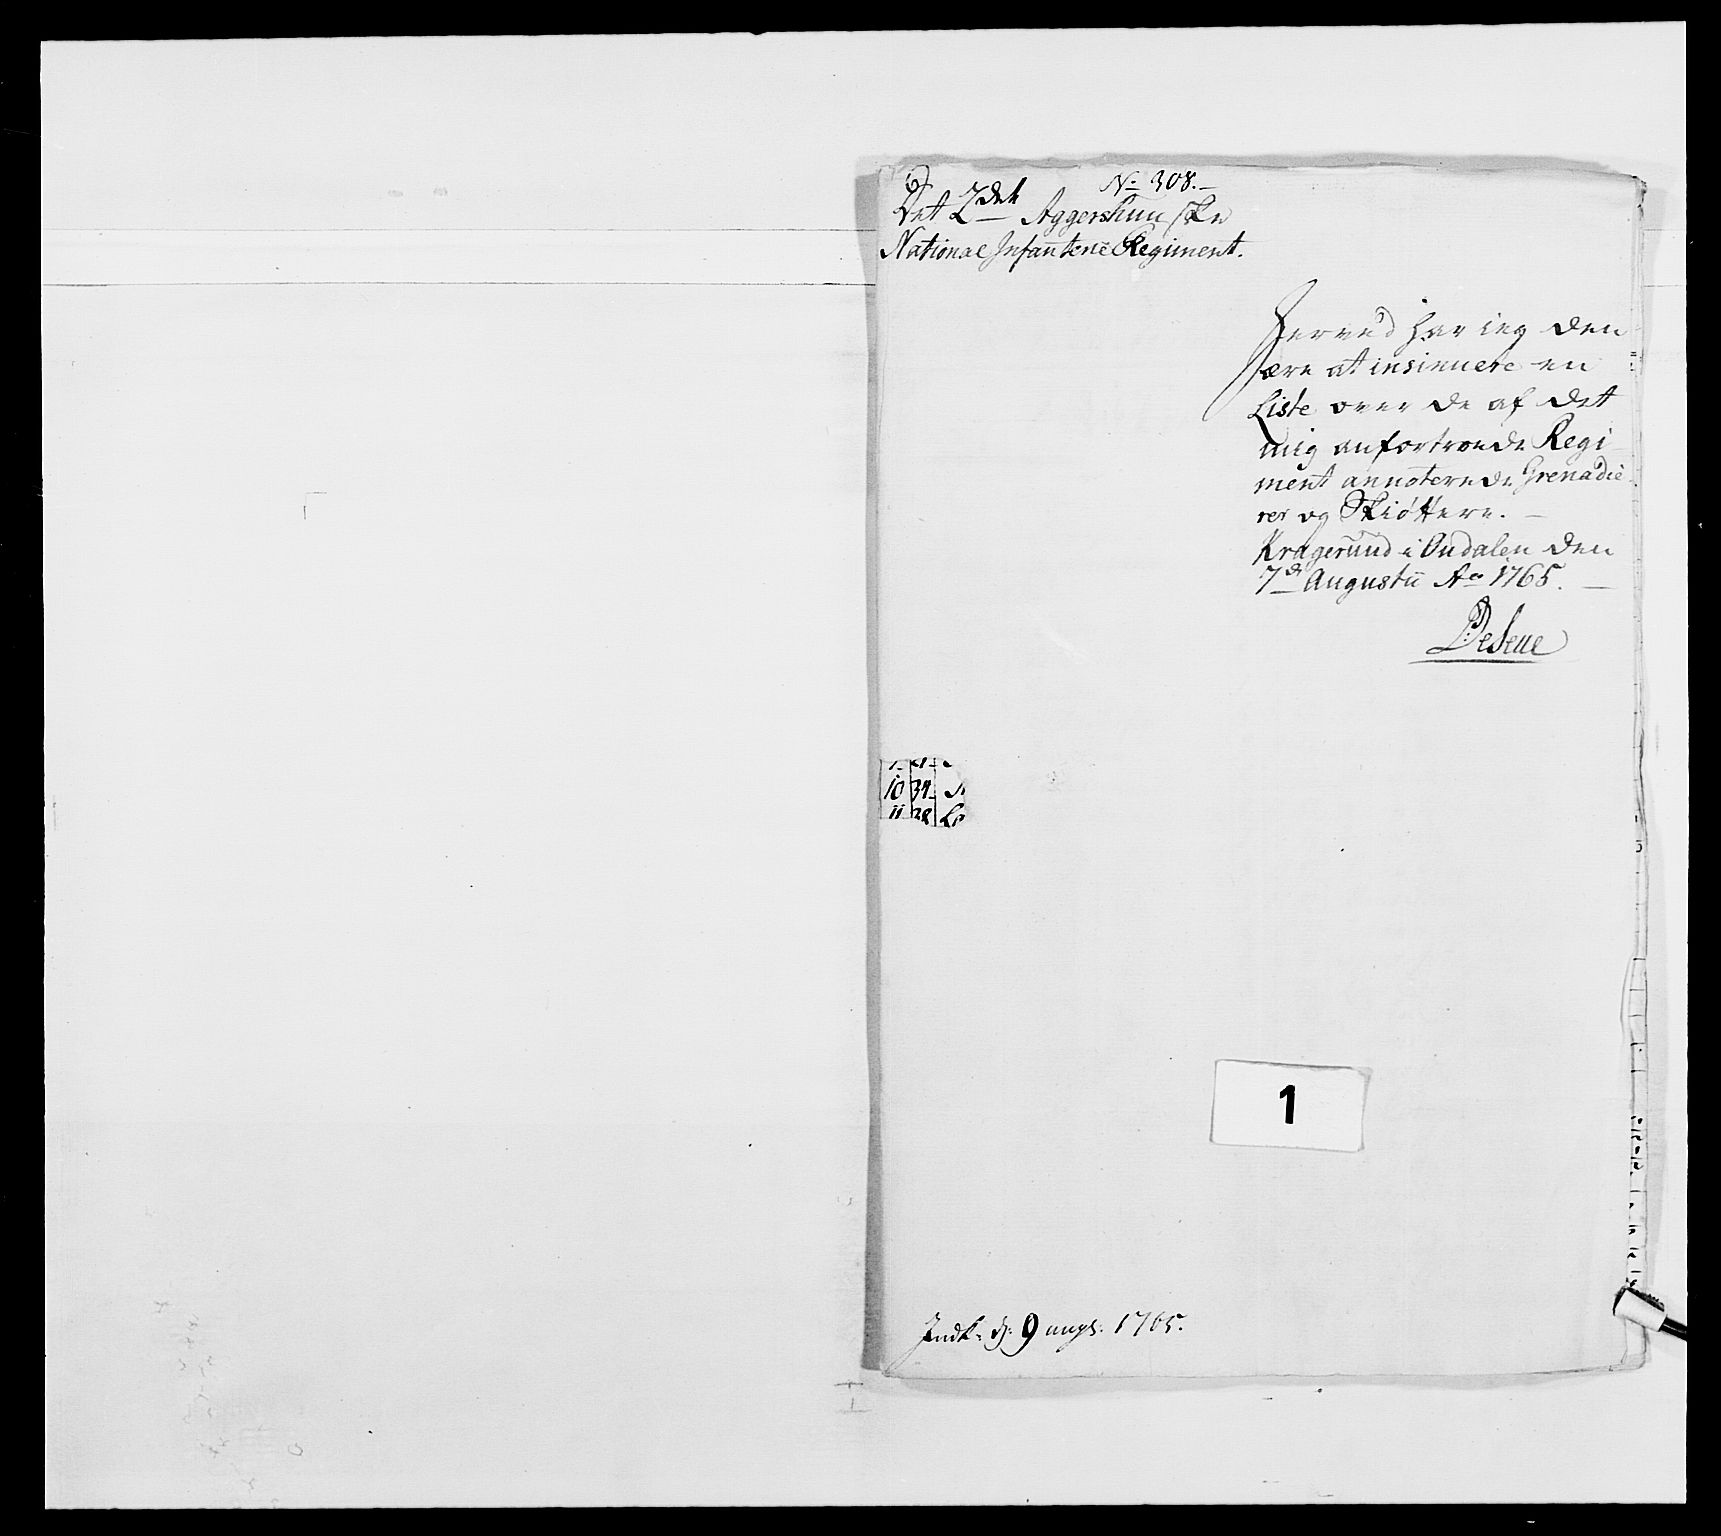 No 308.
Det 2det Aggershuusske
National Infanterie Regiment.
Herved har ieg den
ære at insinuere en
Liste over de af det
mig anfortroede Regi
ment annoterede Grenadie
rer og Skiøttere.
Kragerund i Oudalen den
7de Augustii Ao 1765.
10 34
11 28
1
Indk: d: 9 augs: 1765.